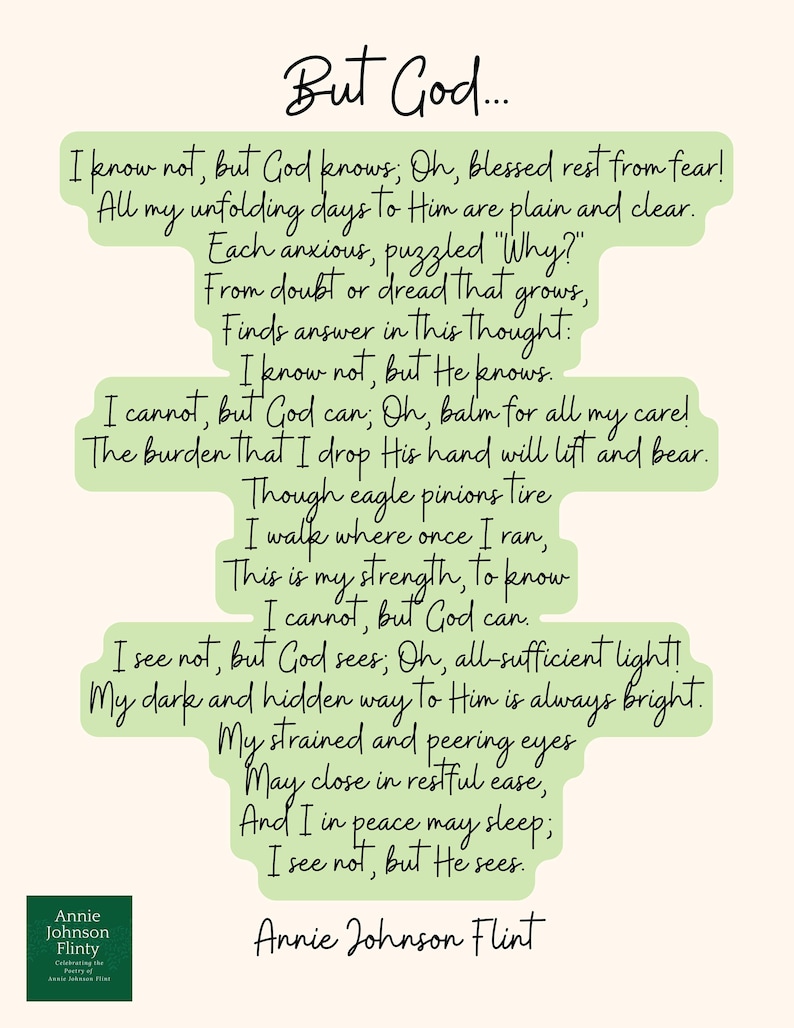 But God...
I know not, but God knows; Oh, blessed rest from fear!
All my unfolding days to Him are plain and clear.
Each anxious, puzzled "Why?"
From doubt or dread that grows,
Finds answer in this thought:
I know not, but He knows.
I cannot, but God can; Oh, balm for all my care!
The burden that I drop His hand will lift and bear.
Though eagle pinions tire
I walk where once I ran,
This is my strength, to know
I cannot, but God can.
I see not, but God sees; Oh, all-sufficient light!
My dark and hidden way to Him is always bright.
My strained and peering eyes
May close in restful ease,
And I in peace may sleep;
I see not, but He sees.
Annie Johnson Flint
Annie
Johnson
Flinty
Celebrating the
Poetry of
Annie Johnson Flint